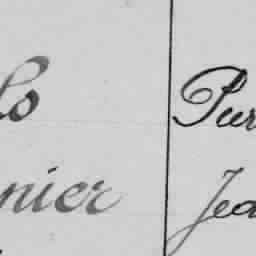 lo Pur
nier Jea